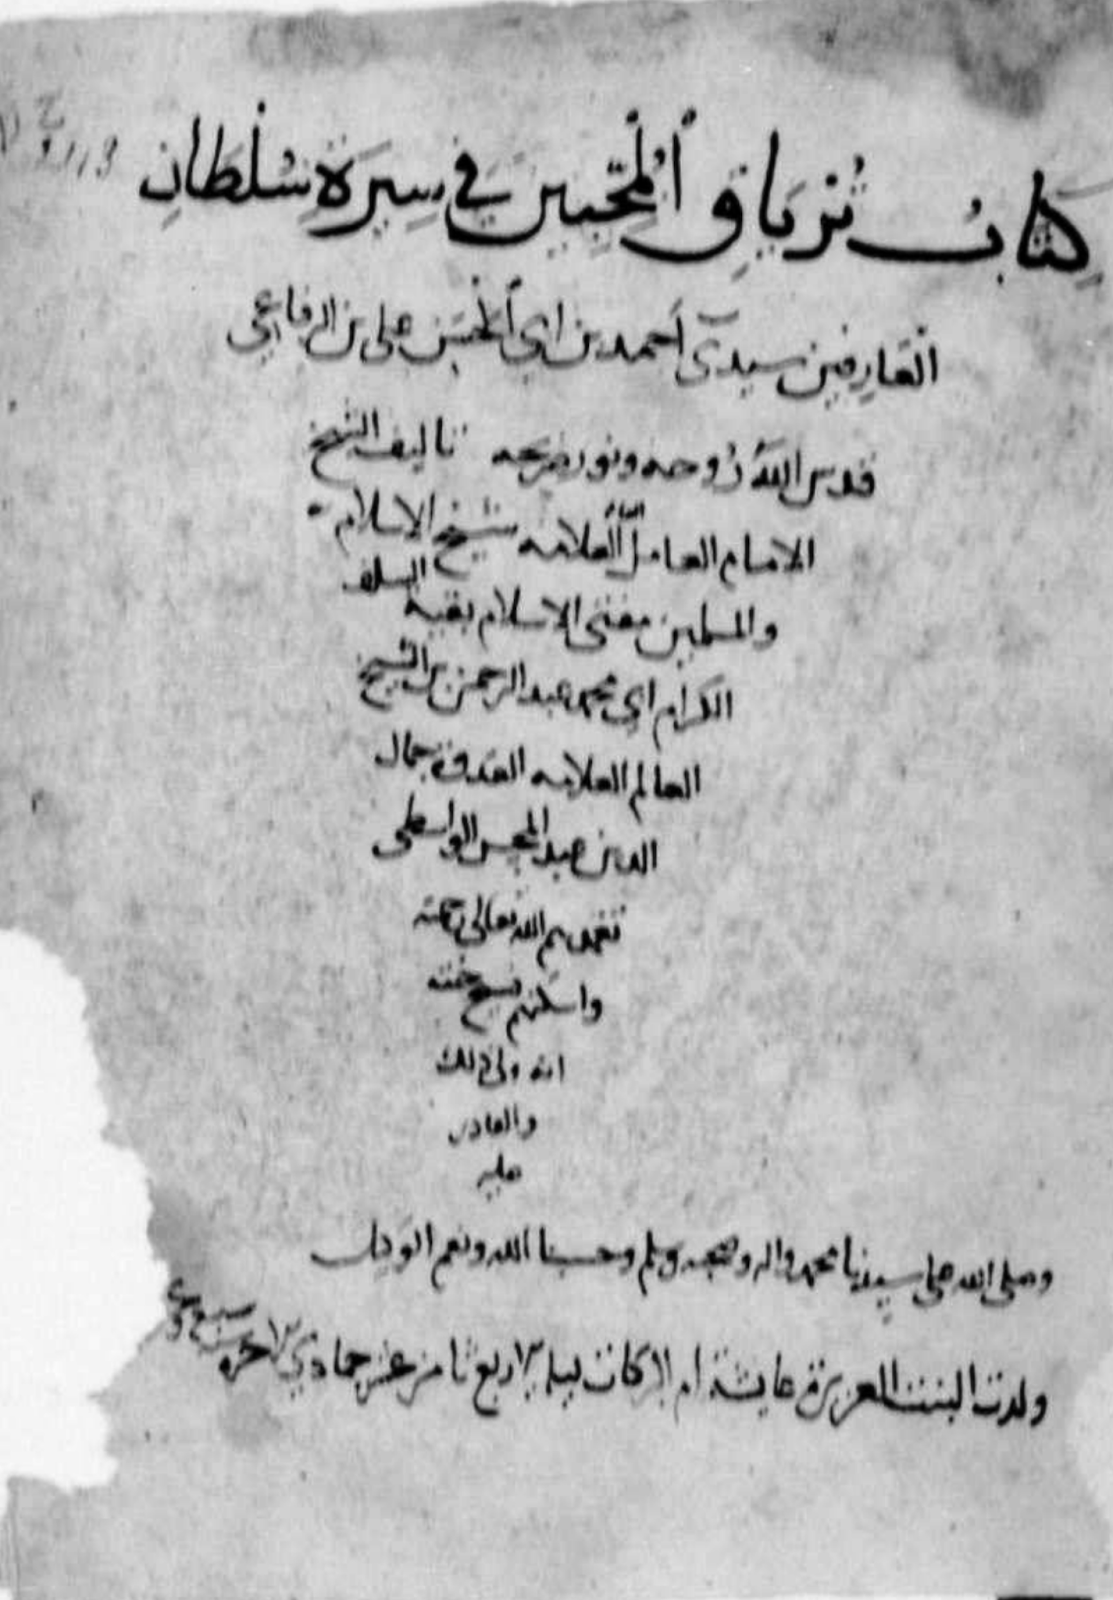 كِتَابُ تُرْيَاقِ ٱلْمُحِبِّينَ فِي سِيرَةِ سُلْطَانِ
العَارِفين سيدي أحمد بن ابي ٱلحَسَن علي بن الرفاعي
قدس اللّه رُوحه ونور ضريحه تاليف الشيخ
الامام العامل العلامه شيخ الاسلام
والمسلمين مفتى الاسلام بقية السلف
الكرام ابي محمد عبد الرحمن بن الشيخ
العالم العلامه القدوة جمال
الدين عبد المحسن الواسطى
تغمدهم الله تعالى برحمته
واسكنهم فسيح جنته
انه ولى ذلك
والقادر
عليه
وصلى الله على سيدنا محمد واله وصحبه وسلم وحسبنا الله ونعم الوَكيل
ولدت البنت العزيزة عايشة ام البركات ليلة الاربع ثامن عشر جمادي الاخره